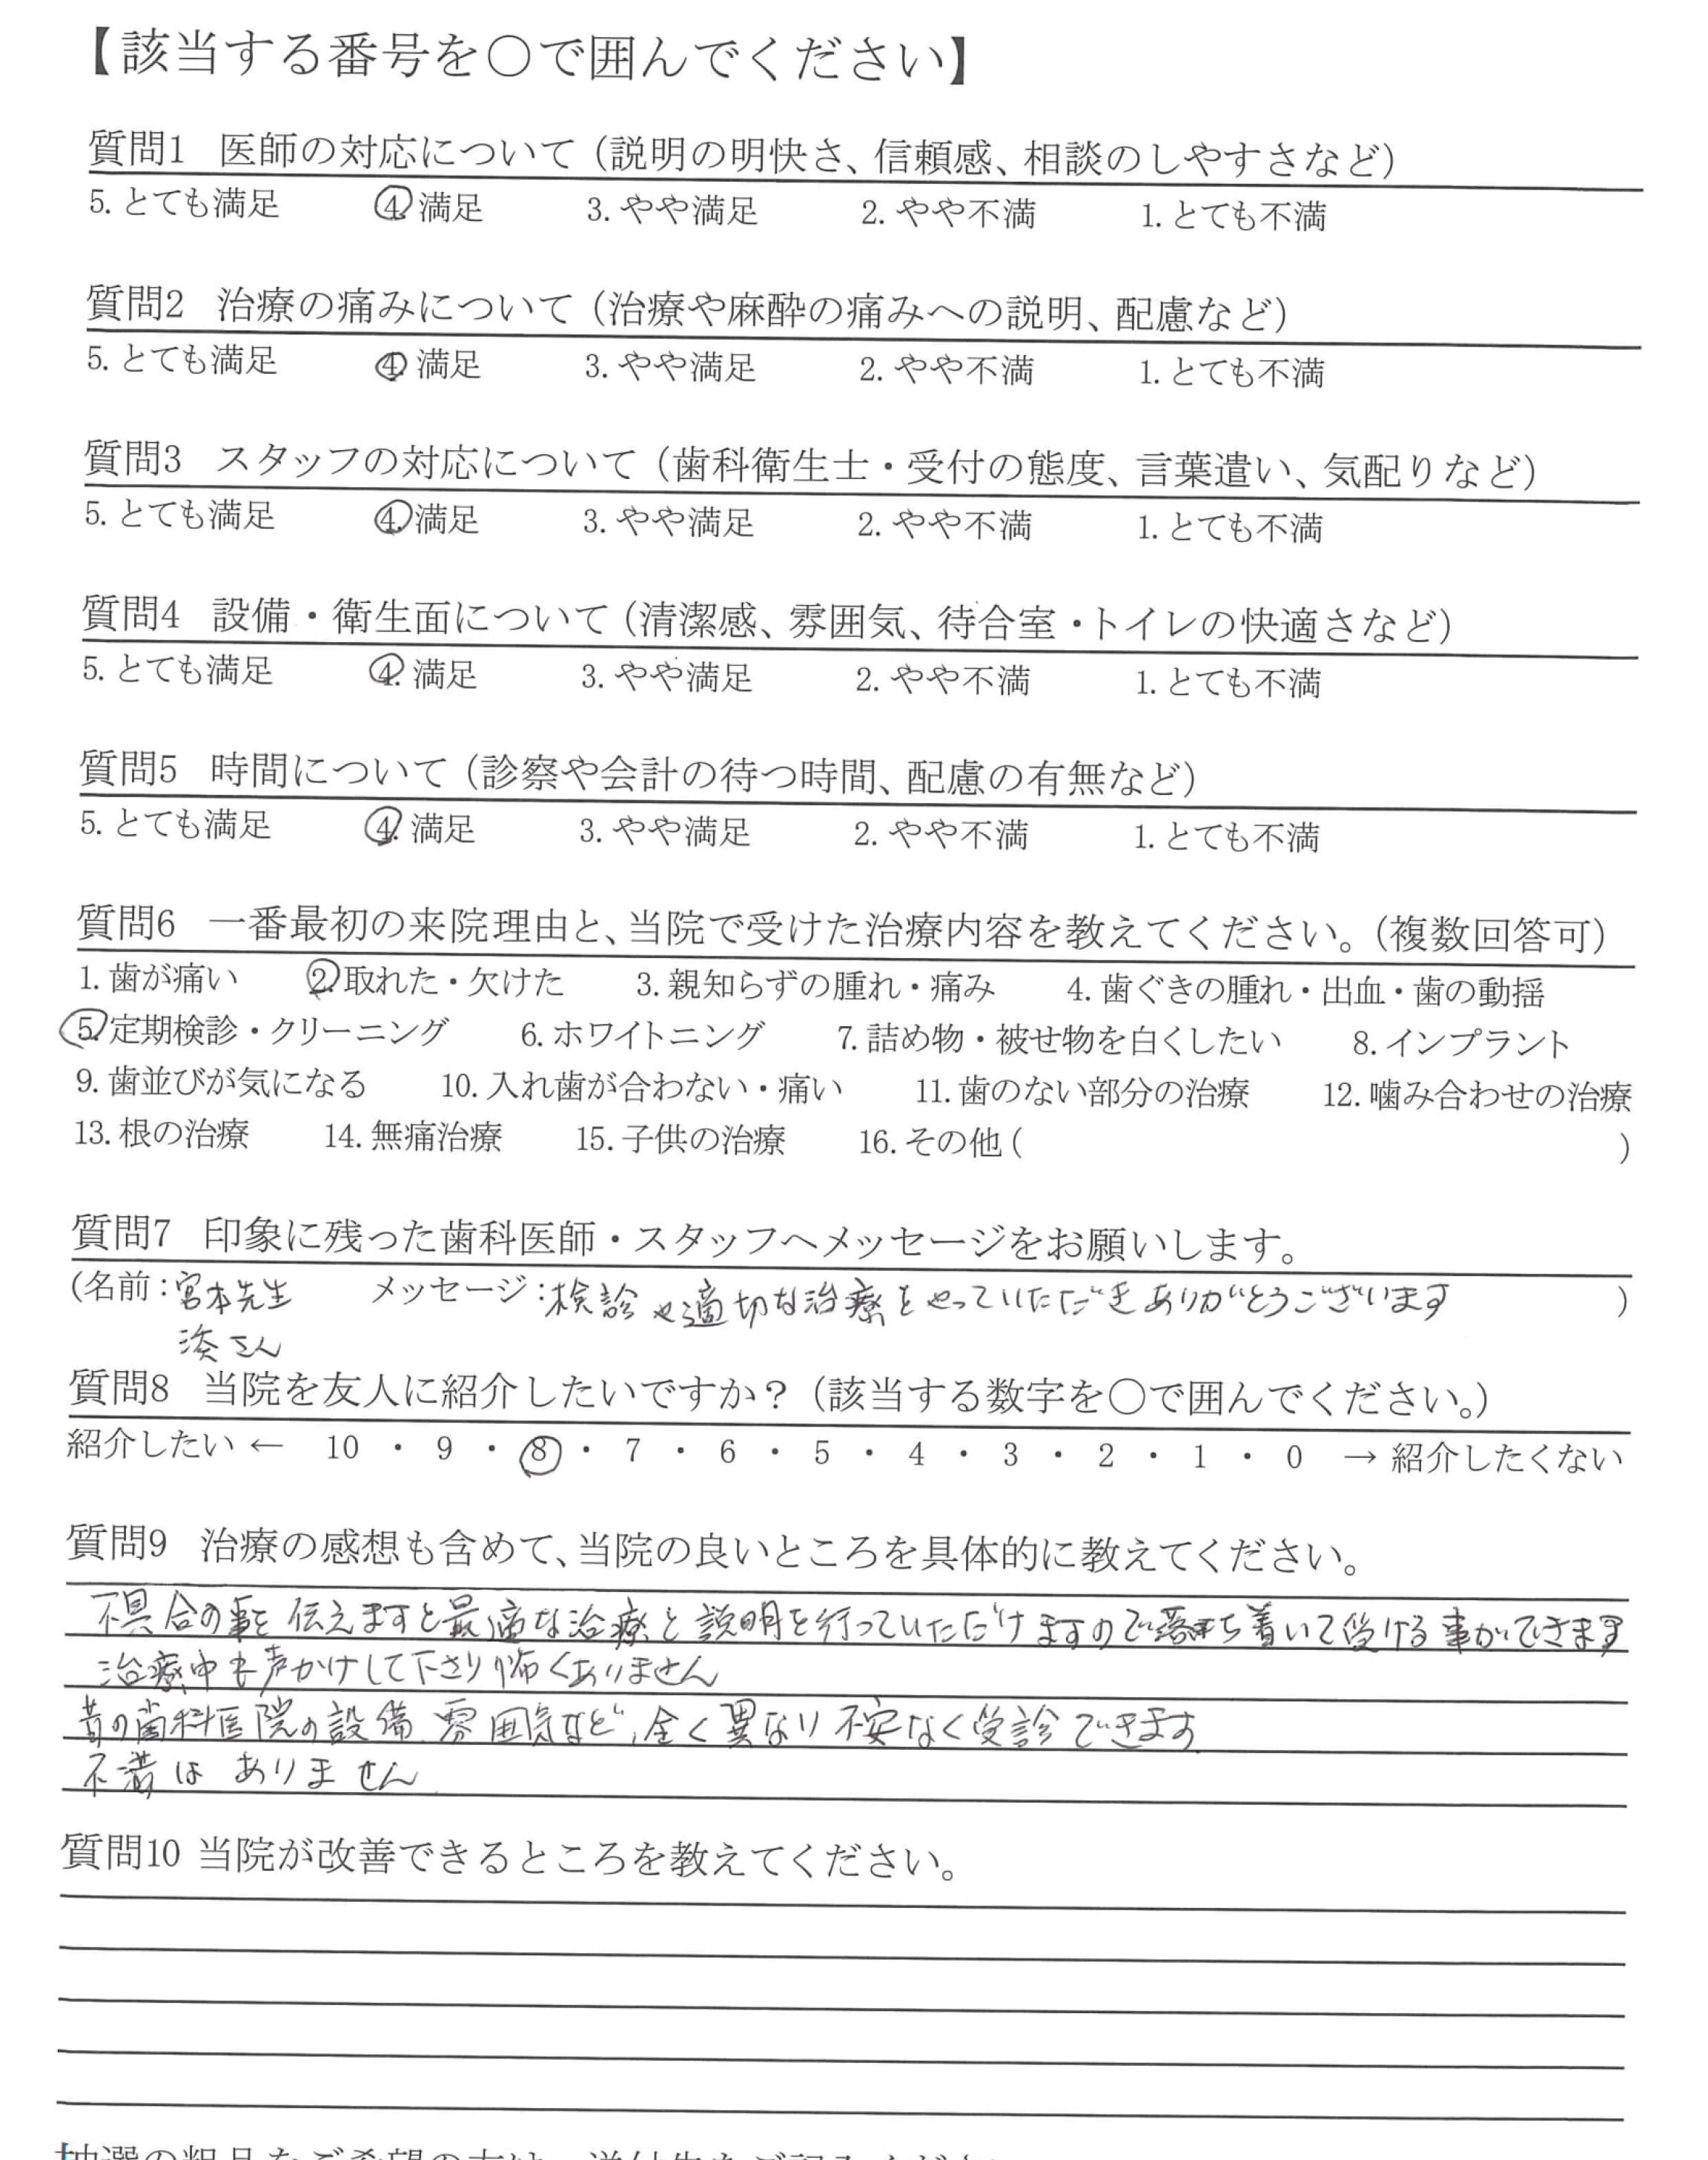 【該当する番号を○で囲んでください】
質問1 医師の対応について（説明の明快さ、信頼感、相談のしやすさなど）
5. とても満足 4. 満足 3. やや満足 2. やや不満 1. とても不満
質問2 治療の痛みについて（治療や麻酔の痛みへの説明、配慮など）
5. とても満足 4. 満足 3. やや満足 2. やや不満 1. とても不満
質問3 スタッフの対応について（歯科衛生士・受付の態度、言葉遣い、気配りなど）
5. とても満足 4. 満足 3. やや満足 2. やや不満 1. とても不満
質問4 設備・衛生面について（清潔感、雰囲気、待合室・トイレの快適さなど）
5. とても満足 4. 満足 3. やや満足 2. やや不満 1. とても不満
質問5 時間について（診察や会計の待つ時間、配慮の有無など）
5. とても満足 4. 満足 3. やや満足 2. やや不満 1. とても不満
質問6 一番最初の来院理由と、当院で受けた治療内容を教えてください。（複数回答可）
1. 歯が痛い 2. 取れた・欠けた 3. 親知らずの腫れ・痛み 4. 歯ぐきの腫れ・出血・歯の動揺
5. 定期検診・クリーニング 6. ホワイトニング 7. 詰め物・被せ物を白くしたい 8. インプラント
9. 歯並びが気になる 10. 入れ歯が合わない・痛い 11. 歯のない部分の治療 12. 噛み合わせの治療
13. 根の治療 14. 無痛治療 15. 子供の治療 16. その他 ( )
質問7 印象に残った歯科医師・スタッフへメッセージをお願いします。
(名前：宮本先生 メッセージ：検診や適切な治療をやっていただきありがとうございます )
湊さん
質問8 当院を友人に紹介したいですか？（該当する数字を○で囲んでください。）
紹介したい ← 10 ・ 9 ・ 8 ・ 7 ・ 6 ・ 5 ・ 4 ・ 3 ・ 2 ・ 1 ・ 0 → 紹介したくない
質問9 治療の感想も含めて、当院の良いところを具体的に教えてください。
不具合の事を伝えますと最適な治療と説明を行っていただけますので落ち着いて受ける事ができます
治療中も声かけして下さり怖くありません
昔の歯科医院の設備、雰囲気など、全く異なり不安なく受診できます
不満はありません
質問10 当院が改善できるところを教えてください。